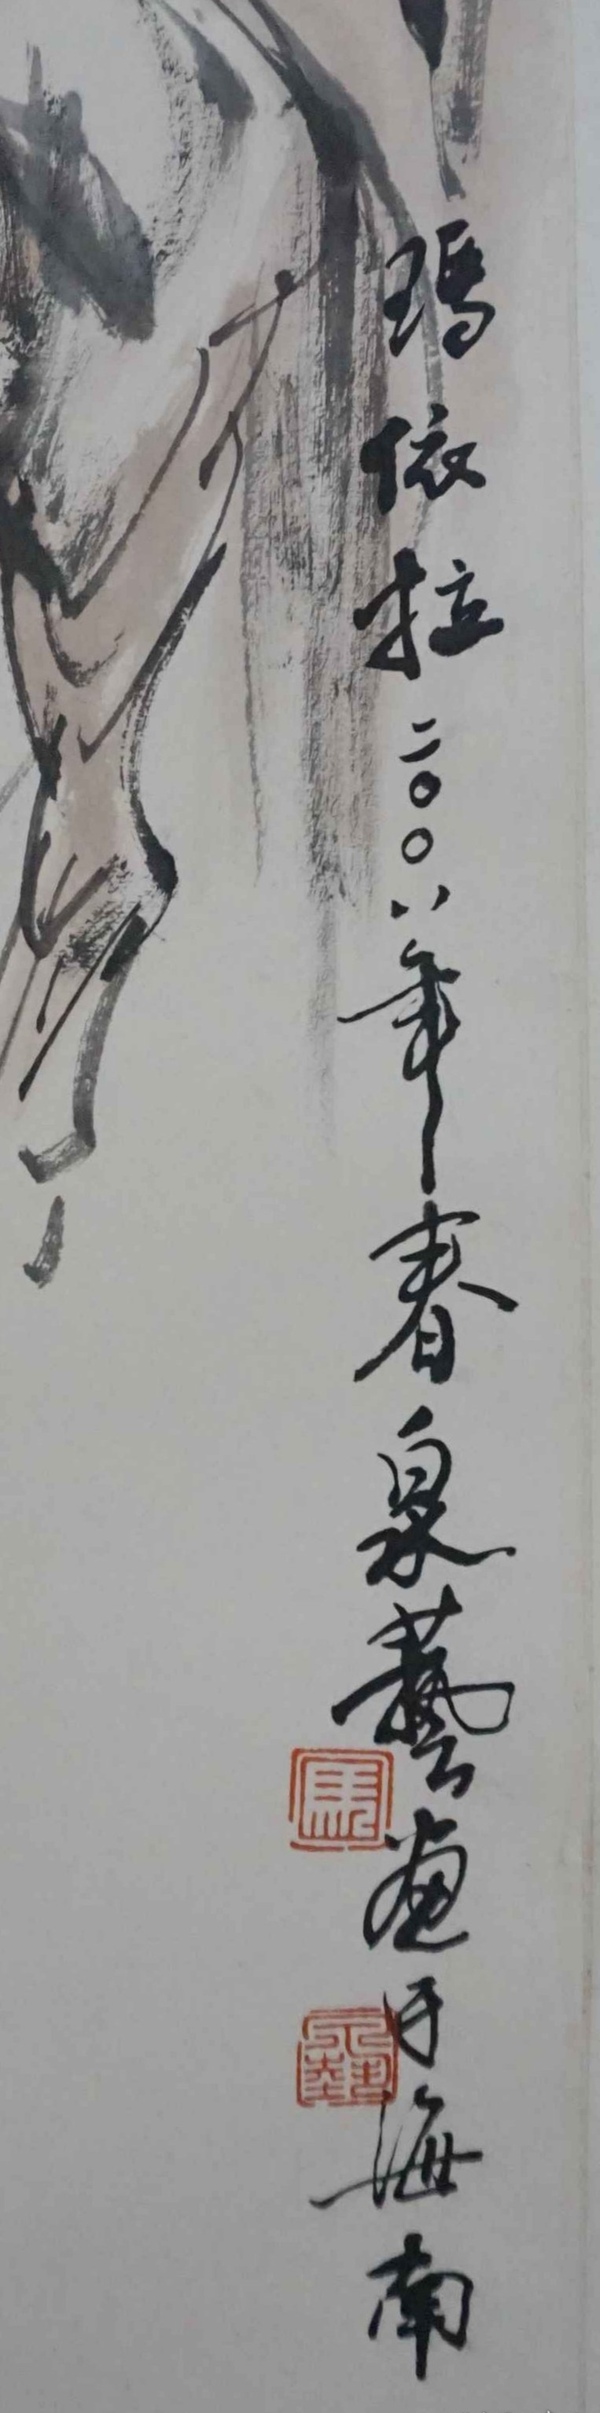 瑪依拉二〇〇八年春泉藝画于海南